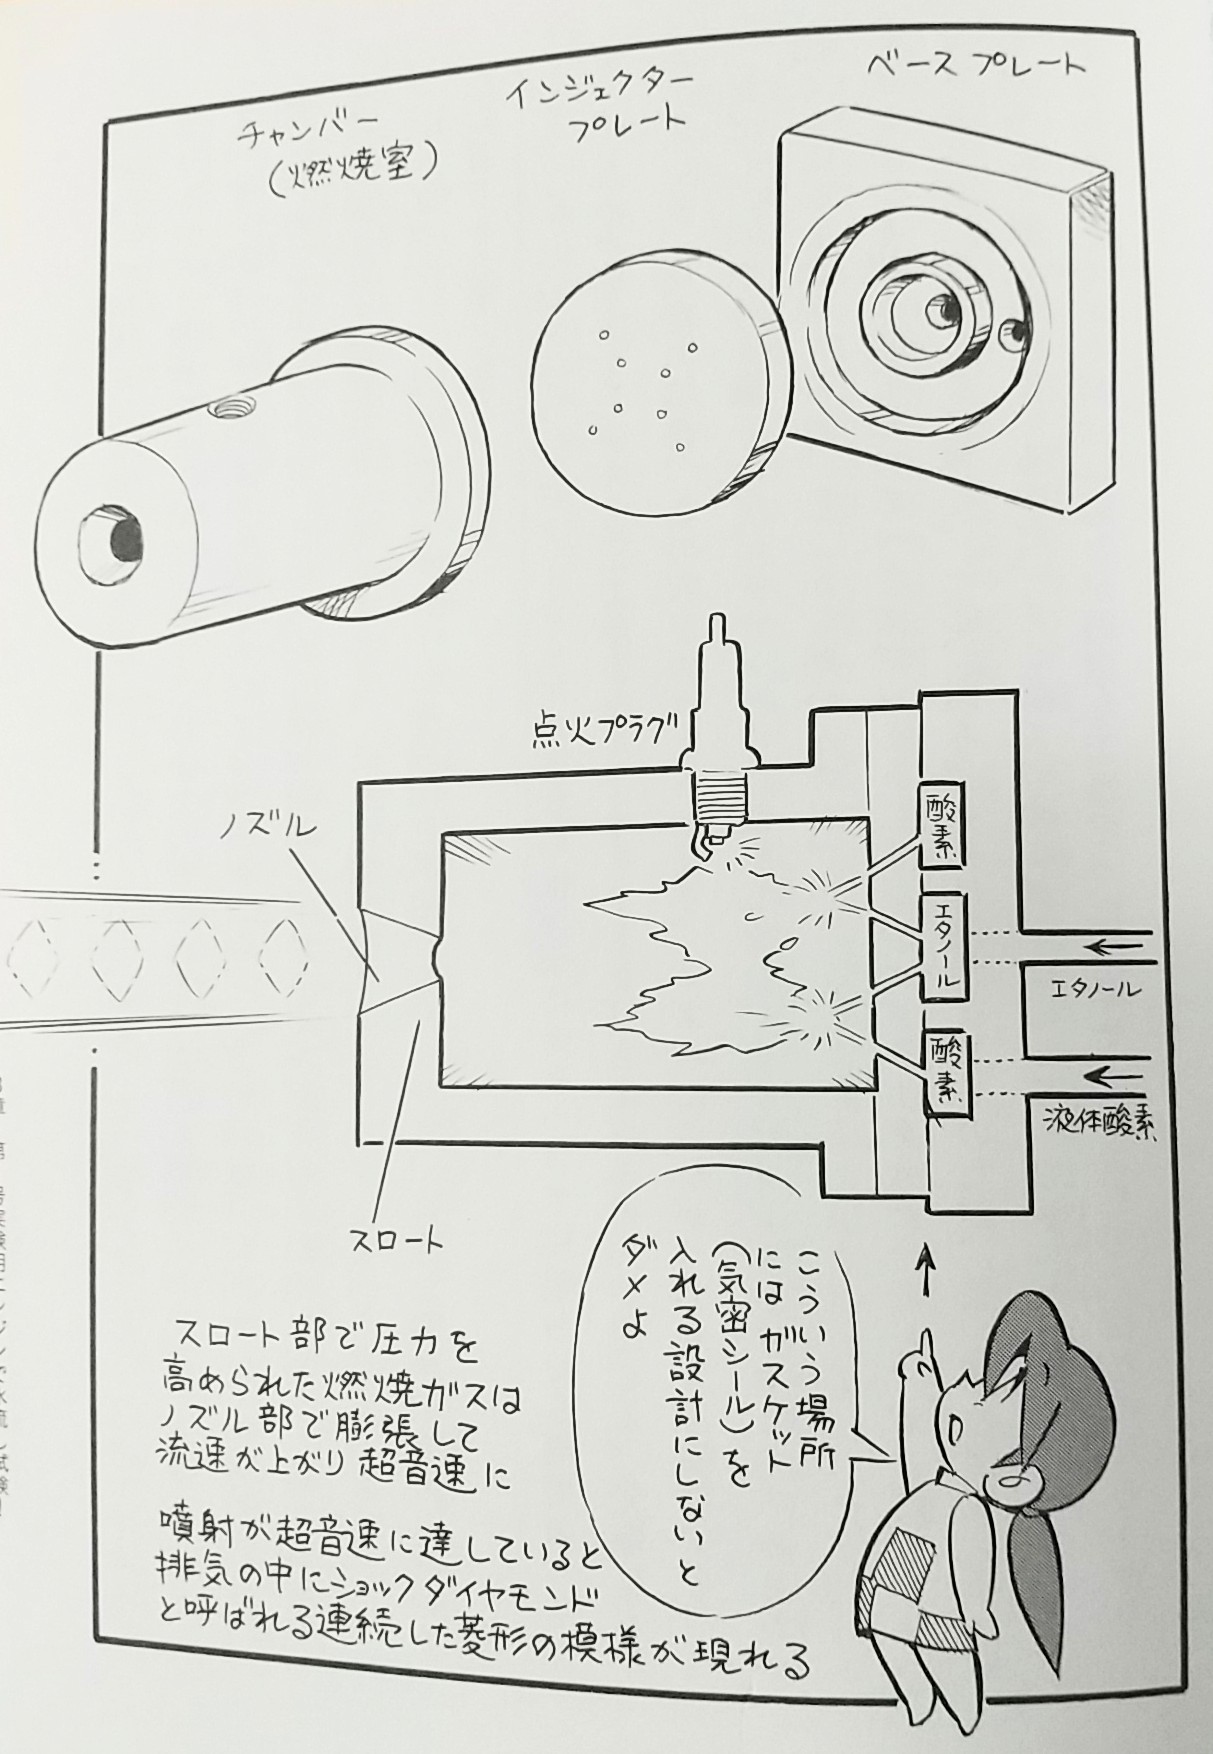 ベース プレート
インジェクター
プレート
チャンバー
(燃焼室)
点火プラグ
ノズル
酸素
エタノール
酸素
エタノール
液体酸素
スロート
こういう場所
にはガスケット
(気密シール)を
入れる設計にしないと
ダメよ
スロート部で圧力を
高められた燃焼ガスは
ノズル部で膨張して
流速が上がり超音速に
噴射が超音速に達していると
排気の中にショックダイヤモンド
と呼ばれる連続した菱形の模様が現れる